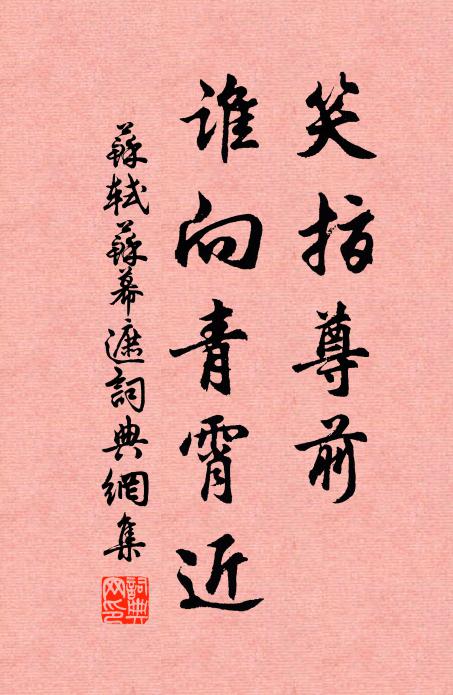 笑指尊前
谁向青霄近
蘇軾蘇幕遮詞典網集
詞典网印